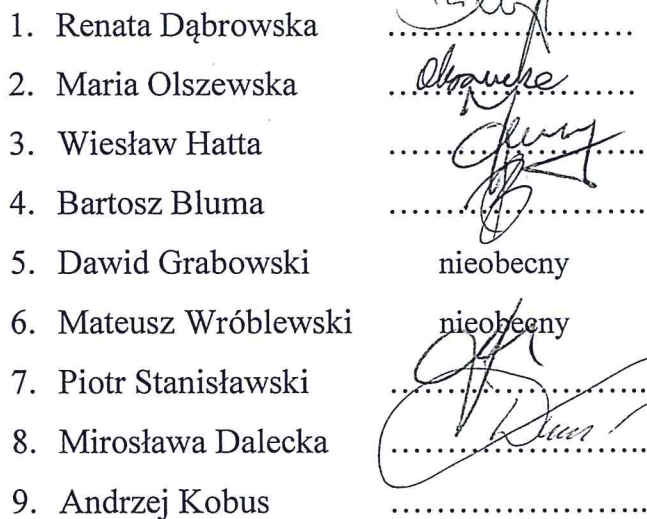 1. Renata Dąbrowska ........................
2. Maria Olszewska ........................
3. Wiesław Hatta ........................
4. Bartosz Bluma ........................
5. Dawid Grabowski nieobecny
6. Mateusz Wróblewski nieobecny
7. Piotr Stanisławski ........................
8. Mirosława Dalecka ........................
9. Andrzej Kobus ........................